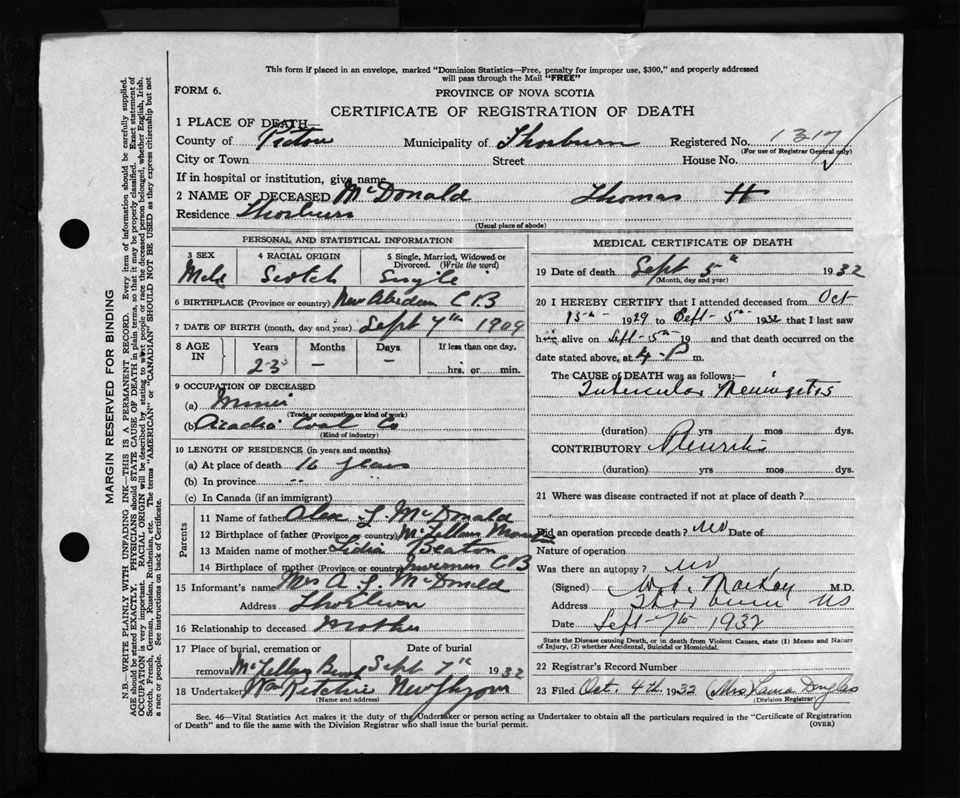 This form if placed in an envelope, marked "Dominion Statistics—Free, penalty for improper use, $300," and properly addressed
will pass through the Mail "FREE"
FORM 6.
PROVINCE OF NOVA SCOTIA
CERTIFICATE OF REGISTRATION OF DEATH
1 PLACE OF DEATH—
County of Pictou Municipality of Thorburn Registered No. 1317
(For use of Registrar General only)
City or Town Street House No.
If in hospital or institution, give name
2 NAME OF DECEASED McDonald Thomas H
Residence Thorburn
(Usual place of abode)
PERSONAL AND STATISTICAL INFORMATION
3 SEX 4 RACIAL ORIGIN 5 Single, Married, Widowed or Divorced. (Write the word)
Male Scotch Single
6 BIRTHPLACE (Province or country) New Aberdeen C.B
7 DATE OF BIRTH (month, day and year) Sept 7th 1909
8 AGE IN Years Months Days If less than one day,
23 — — hrs. or min.
9 OCCUPATION OF DECEASED
(a) Miner
(Trade or occupation or kind of work)
(b) Acadia Coal Co
(Kind of industry)
10 LENGTH OF RESIDENCE (in years and months)
(a) At place of death 16 years
(b) In province " "
(c) In Canada (if an immigrant)
Parents
11 Name of father Alex J. McDonald
12 Birthplace of father (Province or country)
13 Maiden name of mother Lidia Beaton
14 Birthplace of mother (Province or country) Inverness CB
15 Informant's name Mrs A. J. McDonald
Address Thorburn
16 Relationship to deceased Mother
17 Place of burial, cremation or removal Date of burial
Sept 7th 1932
18 Undertaker Wm Ritchie New Glasgow
(Name and address)
MEDICAL CERTIFICATE OF DEATH
19 Date of death Sept 5th 1932
(Month, day and year)
20 I HEREBY CERTIFY that I attended deceased from Oct
15th 1929 to Sept 5th 1932 that I last saw
him alive on Sept 5th 19 and that death occurred on the
date stated above, at 4 P m.
The CAUSE OF DEATH was as follows:—
Tubercular Meningetis
(duration) yrs mos dys.
CONTRIBUTORY Pleuritis
(duration) yrs mos dys.
21 Where was disease contracted if not at place of death?
Did an operation precede death? No Date of
Nature of operation
Was there an autopsy? No
(Signed) W.A. MacKay M.D.
Address Thorburn NS
Date Sept 1932
State the Disease causing Death, or in death from Violent Causes, state (1) Means and Nature
of Injury, (2) whether Accidental, Suicidal or Homicidal.
22 Registrar's Record Number
23 Filed Oct. 4th 1932 (Mrs) Laura Douglas
(Division Registrar)
Sec. 46—Vital Statistics Act makes it the duty of the Undertaker or person acting as Undertaker to obtain all the particulars required in the "Certificate of Registration
of Death" and to file the same with the Division Registrar who shall issue the burial permit.
(OVER)
MARGIN RESERVED FOR BINDING
N.B.—WRITE PLAINLY WITH UNFADING INK—THIS IS A PERMANENT RECORD. Every item of information should be carefully supplied.
AGE should be stated EXACTLY. PHYSICIANS should STATE CAUSE OF DEATH in plain terms, so that it may be properly classified. Exact statement of
OCCUPATION is very important. RACIAL ORIGIN will be described by stating to what people or race the deceased person belonged, whether English, Irish,
Scotch, French, German, Russian, Ruthenian, etc. The terms "AMERICAN" or "CANADIAN" SHOULD NOT BE USED as they express citizenship but not
a race or people. See instructions on back of Certificate.